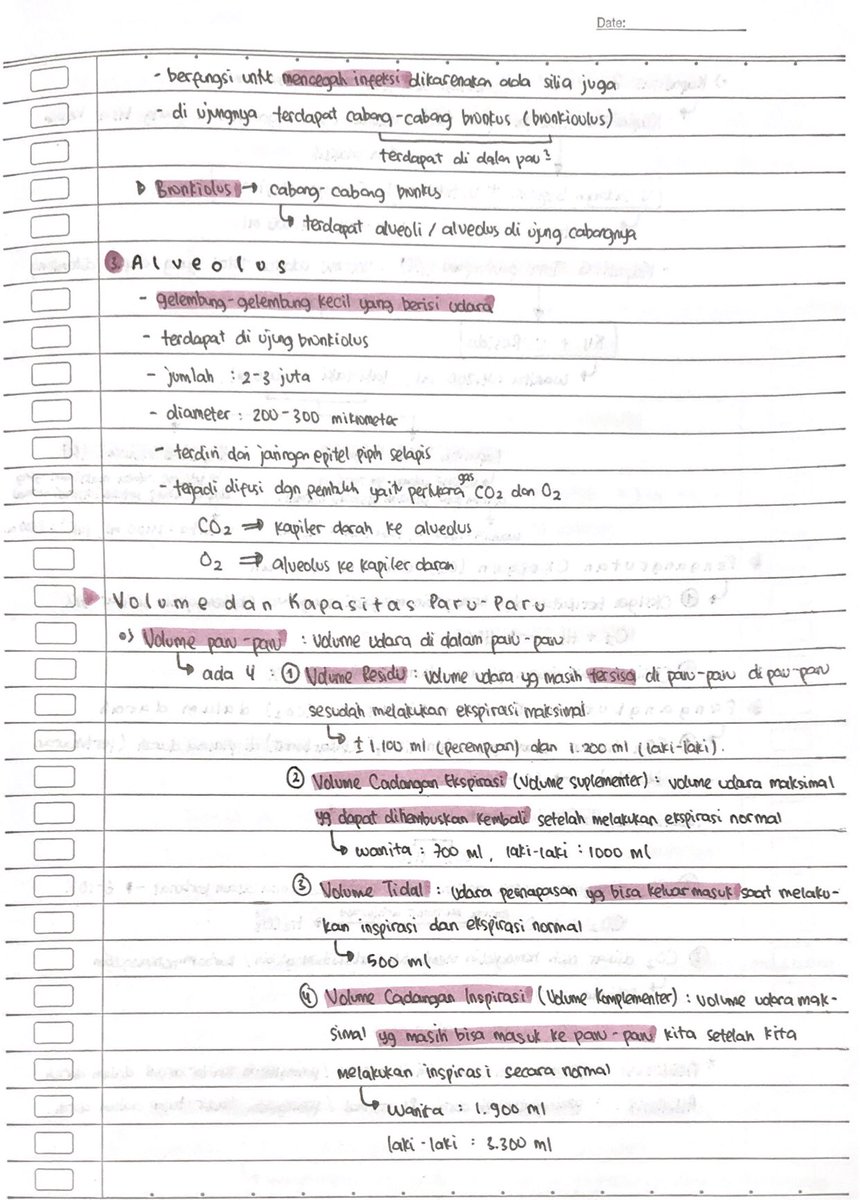 Date:
- berfungsi untk mencegah infeksi dikarenakan ada silia juga
- di ujungnya terdapat cabang-cabang bronkus (bronkioulus)
terdapat di dalam pau²
Bronkiolus → cabang-cabang bronkus
↳ terdapat alveoli / alveolus di ujung cabangnya
3. Alveolus
- gelembung-gelembung kecil yang berisi udara
- terdapat di ujung bronkiolus
- jumlah : 2-3 juta
- diameter : 200-300 mikrometer
- terdiri dari jaringan epitel pipih selapis
- terjadi difusi dgn pembuluh yaitu perkitara gas CO2 dan O2
CO2 ⇒ kapiler darah ke alveolus
O2 ⇒ alveolus ke kapiler darah
Volume dan Kapasitas Paru-Paru
Volume paru-paru : volume udara di dalam paru-paru
↳ ada 4 : ① Volume Residu : volume udara yg masih tersisa di paru-paru di paru-paru
sesudah melakukan ekspirasi maksimal
↳ ± 1.100 ml (perempuan) dan 1.200 ml (laki-laki).
② Volume Cadangan Ekspirasi (Volume suplementer) : volume udara maksimal
yg dapat dihembuskan kembali setelah melakukan ekspirasi normal
↳ wanita : 700 ml, laki-laki : 1000 ml
③ Volume Tidal : udara pernapasan yg bisa keluar masuk saat melaku-
kan inspirasi dan ekspirasi normal
↳ 500 ml
④ Volume Cadangan Inspirasi (Volume Komplementer) : volume udara mak-
simal yg masih bisa masuk ke paru-paru kita setelah kita
melakukan inspirasi secara normal
↳ wanita : 1.900 ml
laki-laki : 3.300 ml